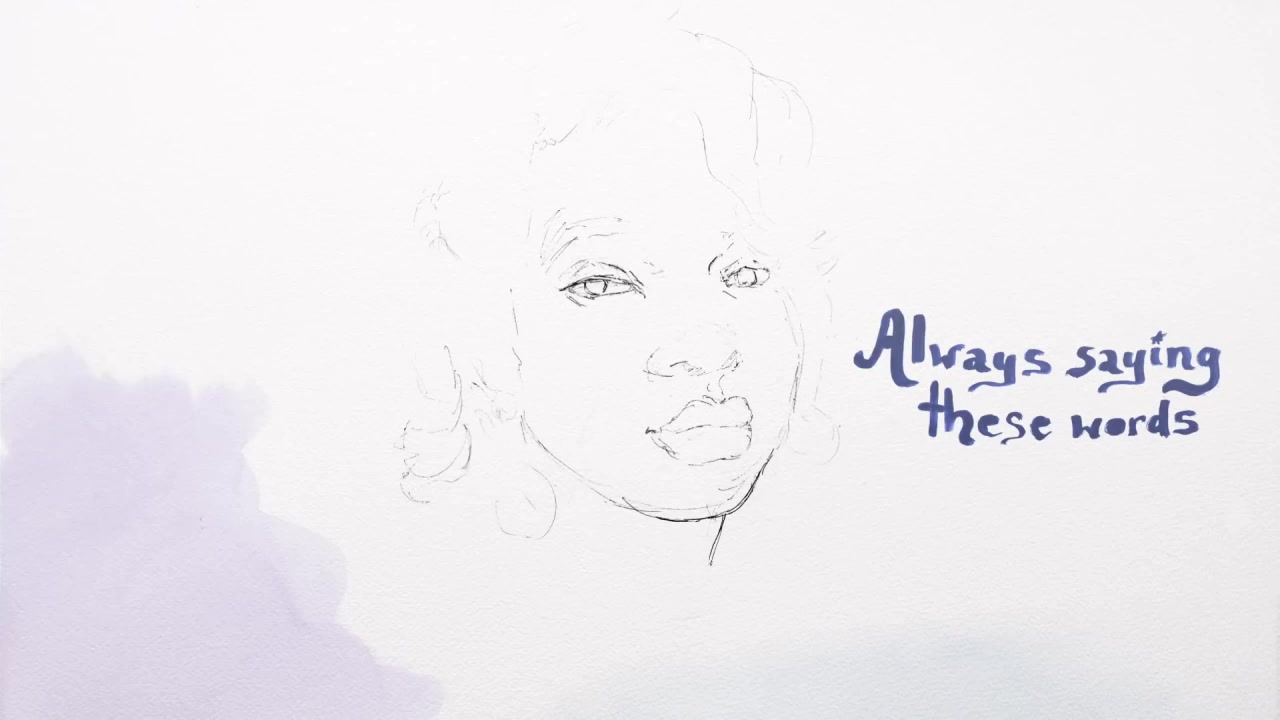 Always saying
these words